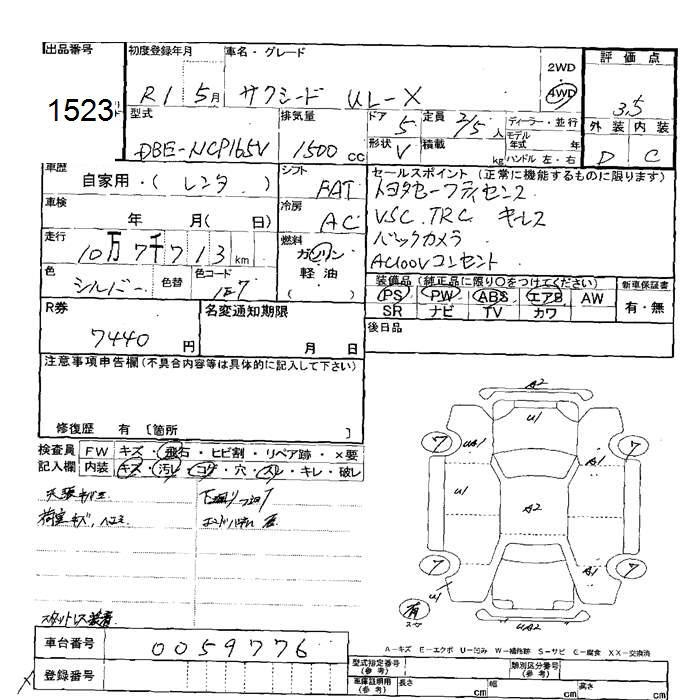 出品番号
1523
初度登録年月
R1 5月
車名・グレード
サクシード UL-X
2WD
4WD
評価点
3.5
外装 内装
D C
型式
DBE-NCP165V
排気量
1500 cc
ドア 5
定員 2/5 人
ディーラー・並行
モデル年式 年
形状 V
積載 kg
ハンドル 左・右
車歴
自家用・( レンタ )
シフト
FAT
車検
年 月( 日)
冷房
AC
走行
10万7千713 km
燃料
ガソリン
軽油
( )
色
シルバー
色替
色コード
1E7
セールスポイント (正常に機能するものに限ります)
トヨタセーフティセンス
VSC.TRC キーレス
バックカメラ
AC100Vコンセント
装備品(純正品に限り○をつけてください)
PS PW ABS エアB AW
SR ナビ TV カワ
新車保証書
有・無
R券
7440 円
名変通知期限
月 日
後日品
注意事項申告欄(不具合内容等は具体的に記入して下さい)
修復歴 有 [箇所 ]
検査員記入欄
FW キズ・飛石・ヒビ割・リペア跡・×要
内装 キズ・汚レ・コゲ・穴・スレ・キレ・破レ
下廻りサビ
スタットレス装着
A2
U1
7
7
UA1
A1
U1
U1
A2
7
7
U1
A1
有
スペア
UA2
A-キズ E-エクボ U-凹み W-補修跡 S-サビ C-腐食 XX-交換済
車台番号
0059776
登録番号
型式指定番号(参考)
類別区分番号(参考)
車庫証明用(参考)
長さ cm
幅 cm
高さ cm